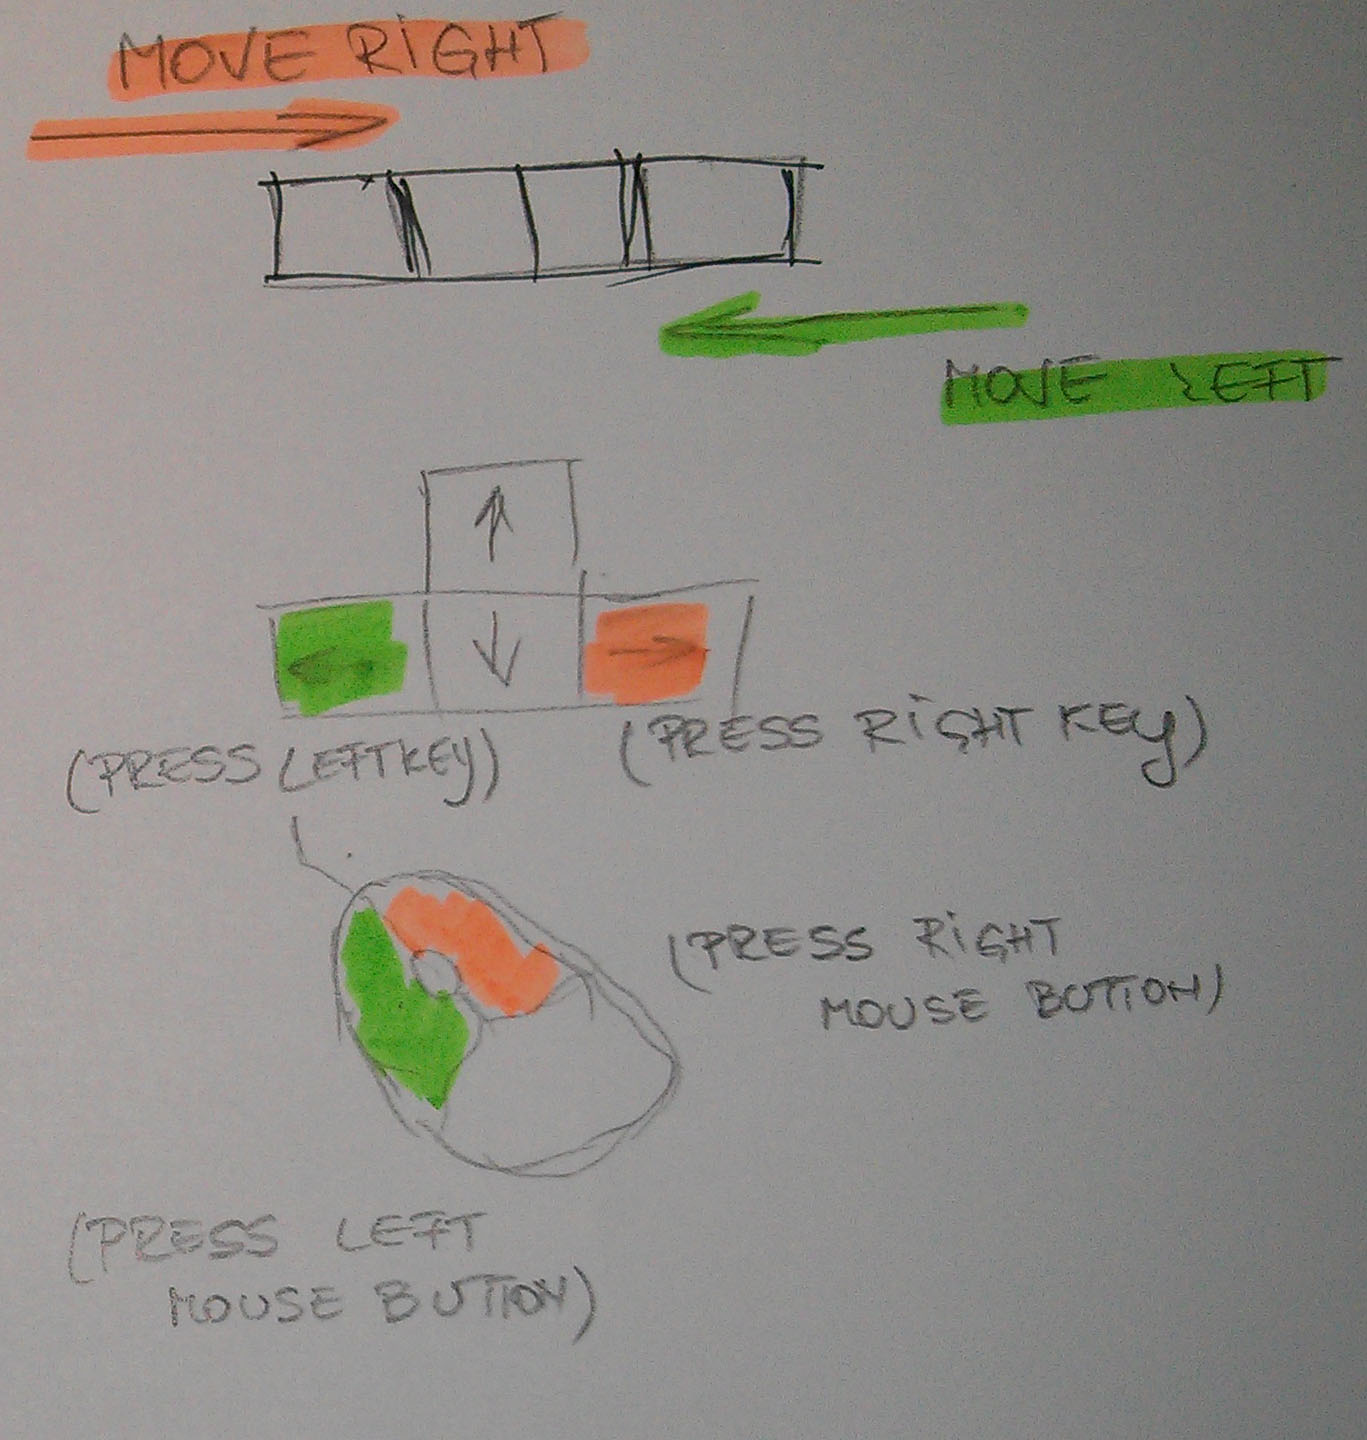 MOVE RIGHT
MOVE LEFT
(PRESS LEFT KEY)
(PRESS RIGHT KEY)
(PRESS RIGHT
MOUSE BUTTON)
(PRESS LEFT
MOUSE BUTTON)